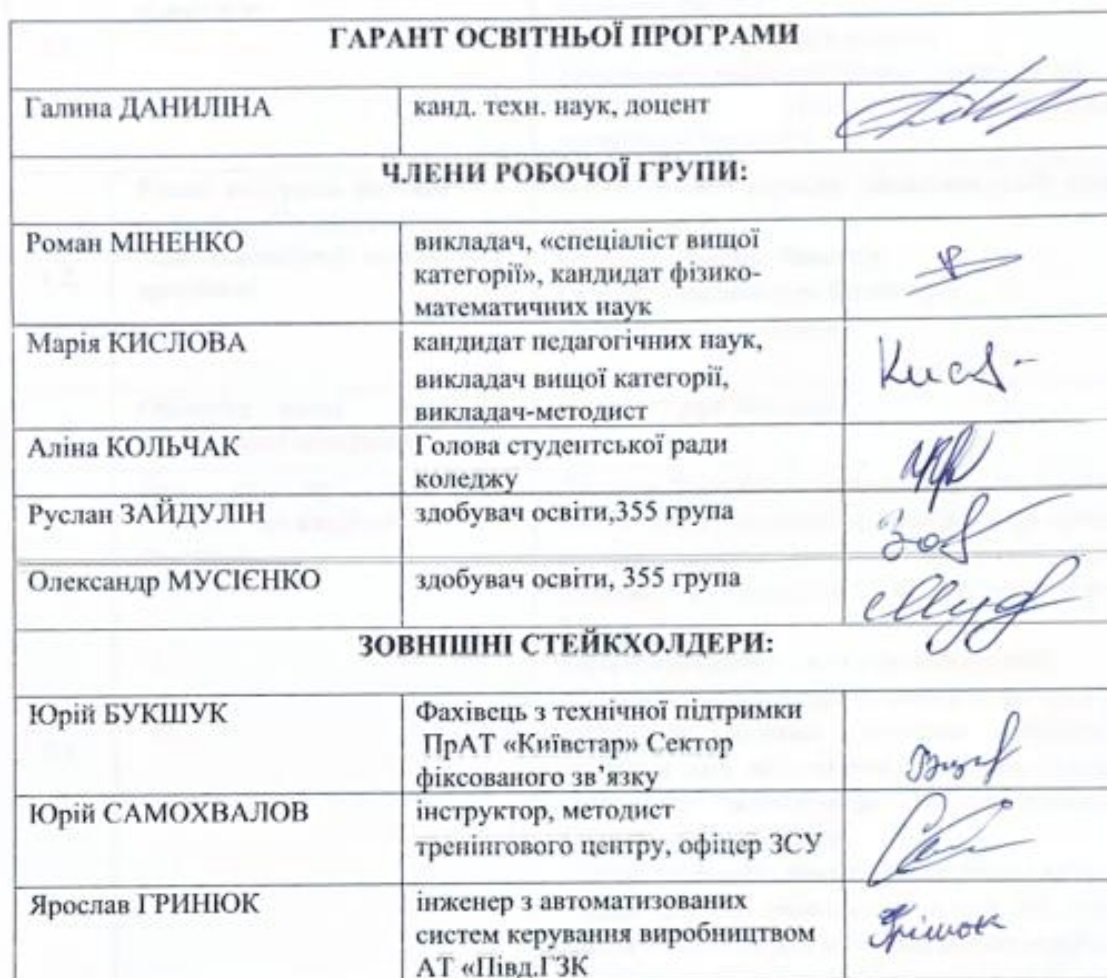 ГАРАНТ ОСВІТНЬОЇ ПРОГРАМИ
Галина ДАНИЛІНА
канд. техн. наук, доцент
ЧЛЕНИ РОБОЧОЇ ГРУПИ:
Роман МІНЕНКО
викладач, «спеціаліст вищої
категорії», кандидат фізико-
математичних наук
Марія КИСЛОВА
кандидат педагогічних наук,
викладач вищої категорії,
викладач-методист
Аліна КОЛЬЧАК
Голова студентської ради
коледжу
Руслан ЗАЙДУЛІН
здобувач освіти,355 група
Олександр МУСІЄНКО
здобувач освіти, 355 група
ЗОВНІШНІ СТЕЙКХОЛДЕРИ:
Юрій БУКШУК
Фахівець з технічної підтримки
ПрАТ «Київстар» Сектор
фіксованого зв’язку
Юрій САМОХВАЛОВ
інструктор, методист
тренінгового центру, офіцер ЗСУ
Ярослав ГРИНЮК
інженер з автоматизованих
систем керування виробництвом
АТ «Півд.ГЗК